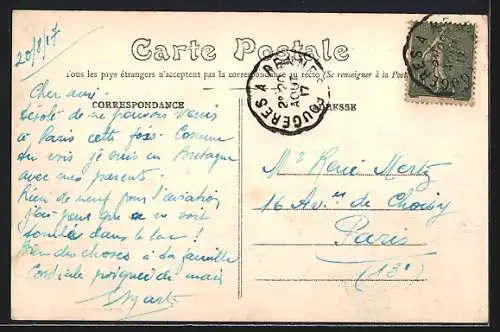 20/8/17
Carte Postale
Tous les pays étrangers n'acceptent pas la correspondance au recto (Se renseigner à la Poste)
CORRESPONDANCE
ADRESSE
FOUGÈRES A
2e 20
AOUT
17
Cher ami.
Désolé de ne pouvoir venir
à Paris cette fois. Comme
tu vois je suis en Bretagne
avec mes parents.
Rien de neuf pour l'aviation
j'ai peur que ce ne soit
tombé dans le lac !
Bien des choses à ta famille
Cordiale poignée de main
Mr René Mertz
16 Av. de Choisy
Paris
(13e)